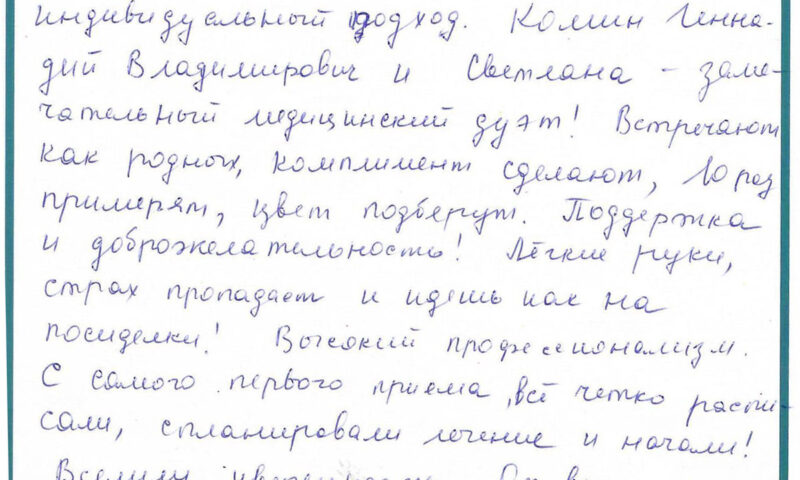 индивидуельный подход. Комин Генна-
дий Владимирович и Светлана - заме-
чательный медицинский дуэт! Встречают
как родных, комплимент сделают, 10 раз
примерят, цвет подберут. Поддержка
и доброжелательность! Лёгкие руки,
страх пропадает и идешь как на
посиделки! Высокий профессионализм.
С самого первого приема, всё четко распи-
сали, спланировали лечение и начали!
Вселили